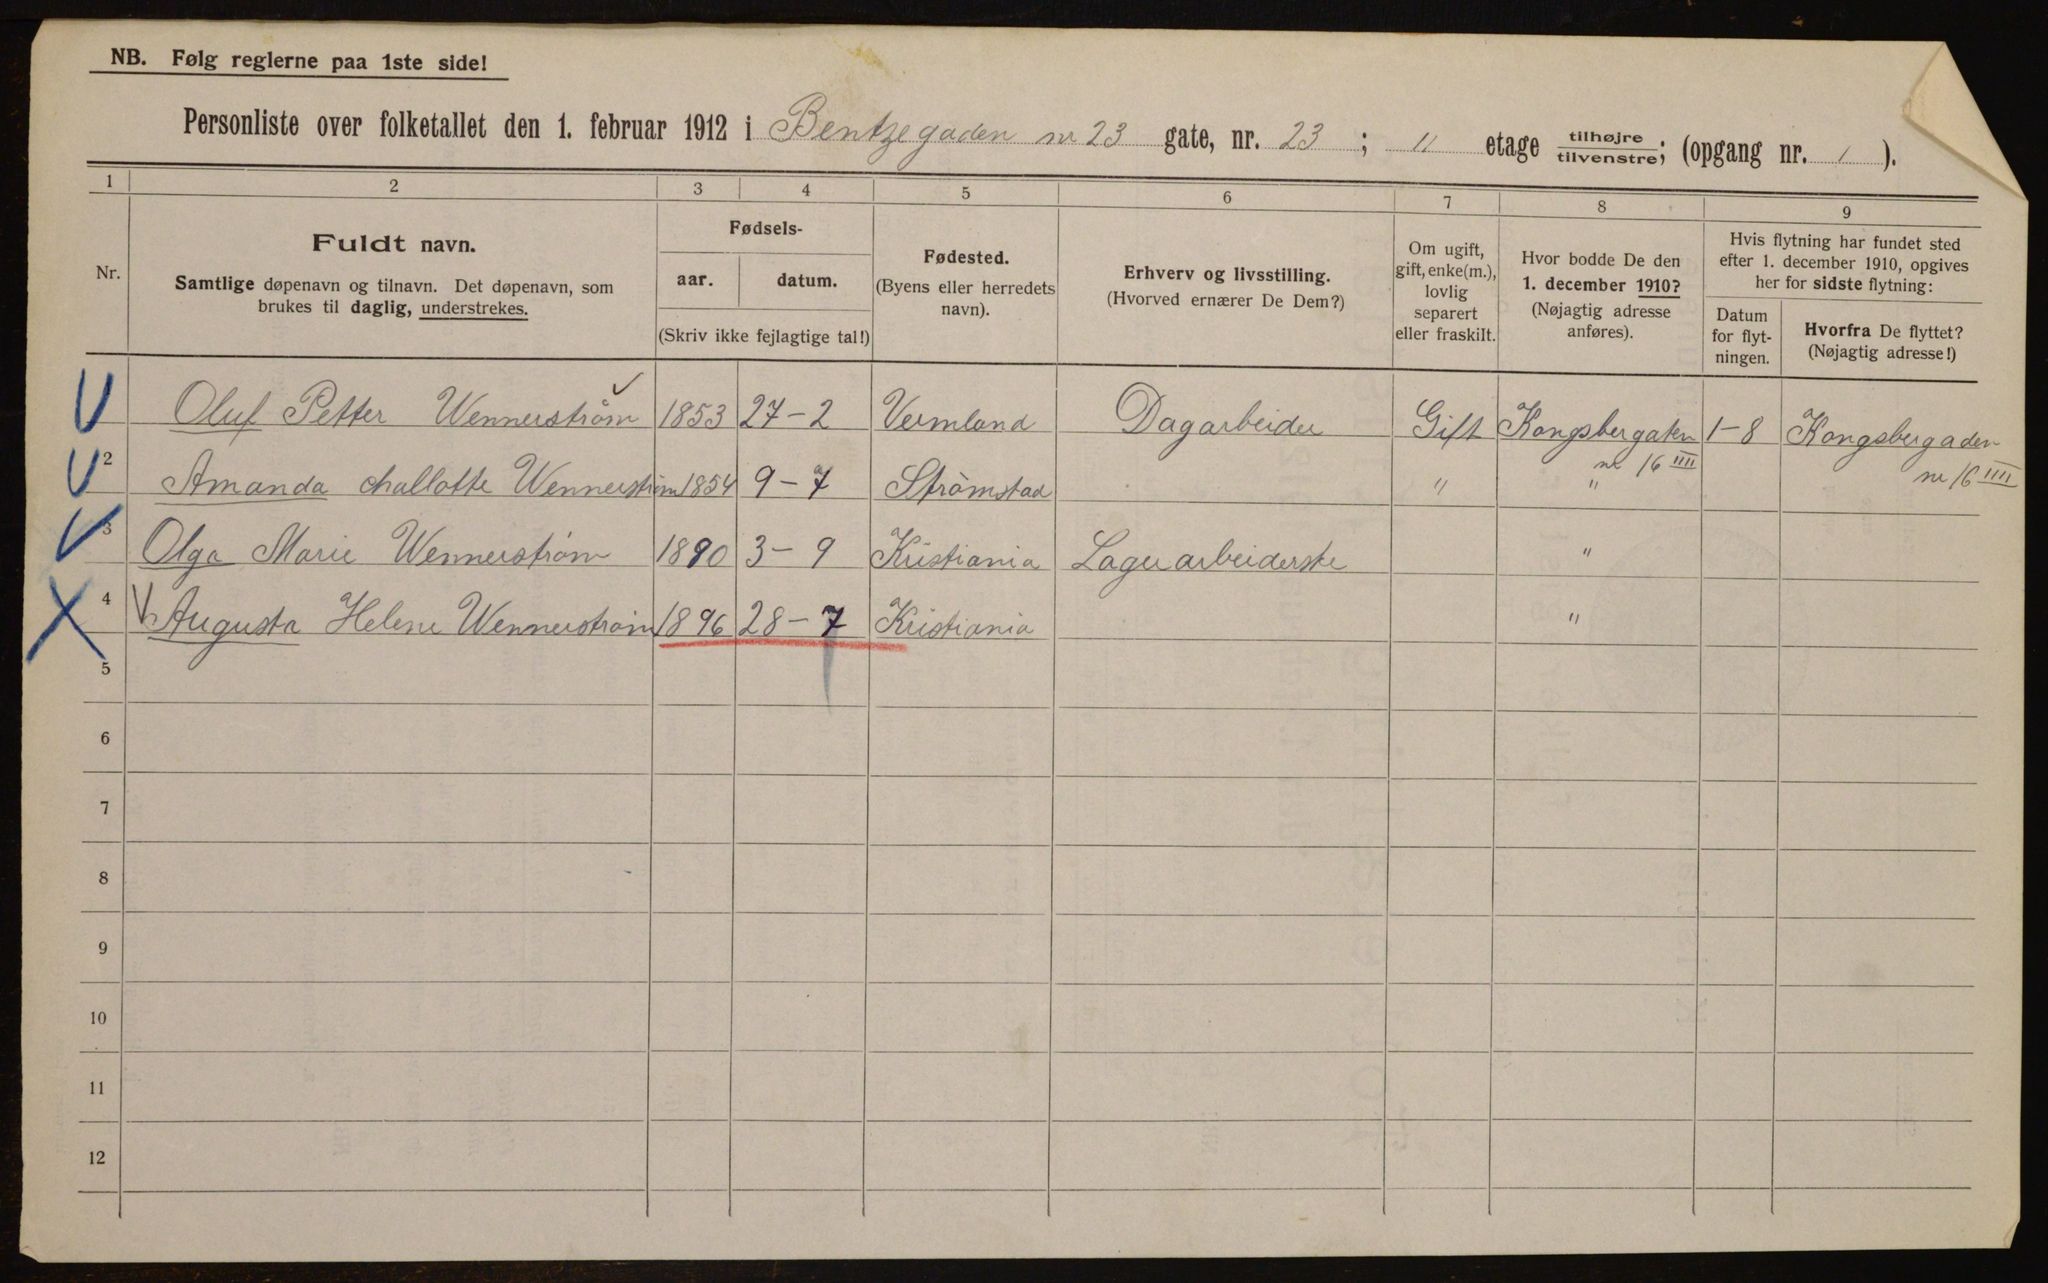 NB. Følg reglerne paa 1ste side!
Personliste over folketallet den 1. februar 1912 i Bentzegaden nr 23 gate, nr. 23 ; 11 etage tilhøjre/tilvenstre; (opgang nr. 1 ).
1 2 3 4 5 6 7 8 9
Nr.
Fuldt navn.
Samtlige døpenavn og tilnavn. Det døpenavn, som
brukes til daglig, understrekes.
Fødsels-
aar. datum.
(Skriv ikke fejlagtige tal!)
Fødested.
(Byens eller herredets
navn).
Erhverv og livsstilling.
(Hvorved ernærer De Dem?)
Om ugift,
gift, enke(m.),
lovlig
separert
eller fraskilt.
Hvor bodde De den
1. december 1910?
(Nøjagtig adresse
anføres).
Hvis flytning har fundet sted
efter 1. december 1910, opgives
her for sidste flytning:
Datum
for flyt-
ningen.
Hvorfra De flyttet?
(Nøjagtig adresse!)
Oluf Petter Wennerstrøm 1853 27-2 Vermland Dagarbeider Gift Kongsbergaten 1-8 Kongsbergaden
nr 16 IIII nr 16 IIII
2 Amanda challotte Wennerstrøm 1854 9-7 Strømstad " "
3 Olga Marie Wennerstrøm 1890 3-9 Kristiania Lagerarbeiderske "
4 Augusta Helene Wennerstrøm 1896 28-7 Kristiania "
5
6
7
8
9
10
11
12